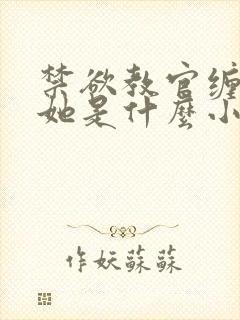 禁欲教官缠
她是什麼小
作妖蘇蘇